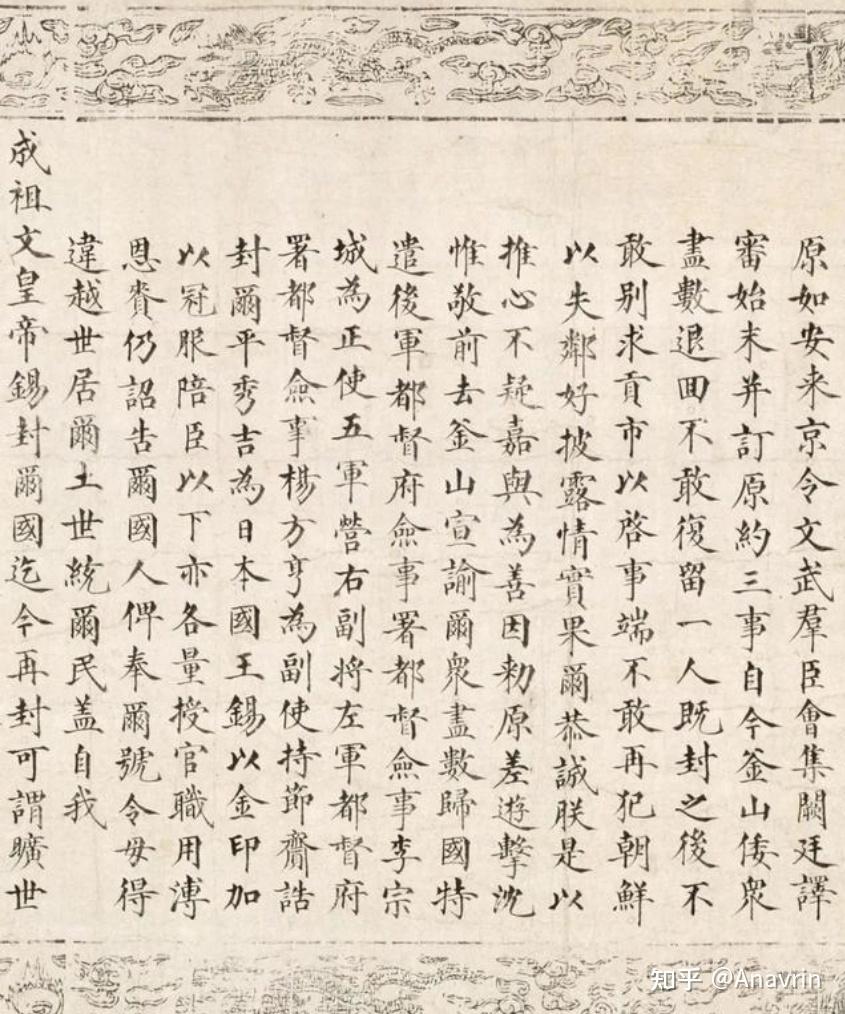 原如安来京令文武羣臣會集闕廷譯
審始末并訂原約三事自今釜山倭衆
盡數退回不敢復留一人既封之後不
敢别求貢市以啓事端不敢再犯朝鮮
以失鄰好披露情實果爾恭誠朕是以
推心不疑嘉與為善因勑原差遊擊沈
惟敬前去釜山宣諭爾衆盡數歸國特
遣後軍都督府僉事署都督僉事李宗
城為正使五軍營右副将左軍都督府
署都督僉事楊方亨為副使持節齎誥
封爾平秀吉為日本國王錫以金印加
以冠服陪臣以下亦各量授官職用溥
恩賚仍詔告爾國人俾奉爾號令毋得
違越世居爾土世統爾民盖自我
成祖文皇帝錫封爾國迄今再封可謂曠世
知乎 @Anavrin